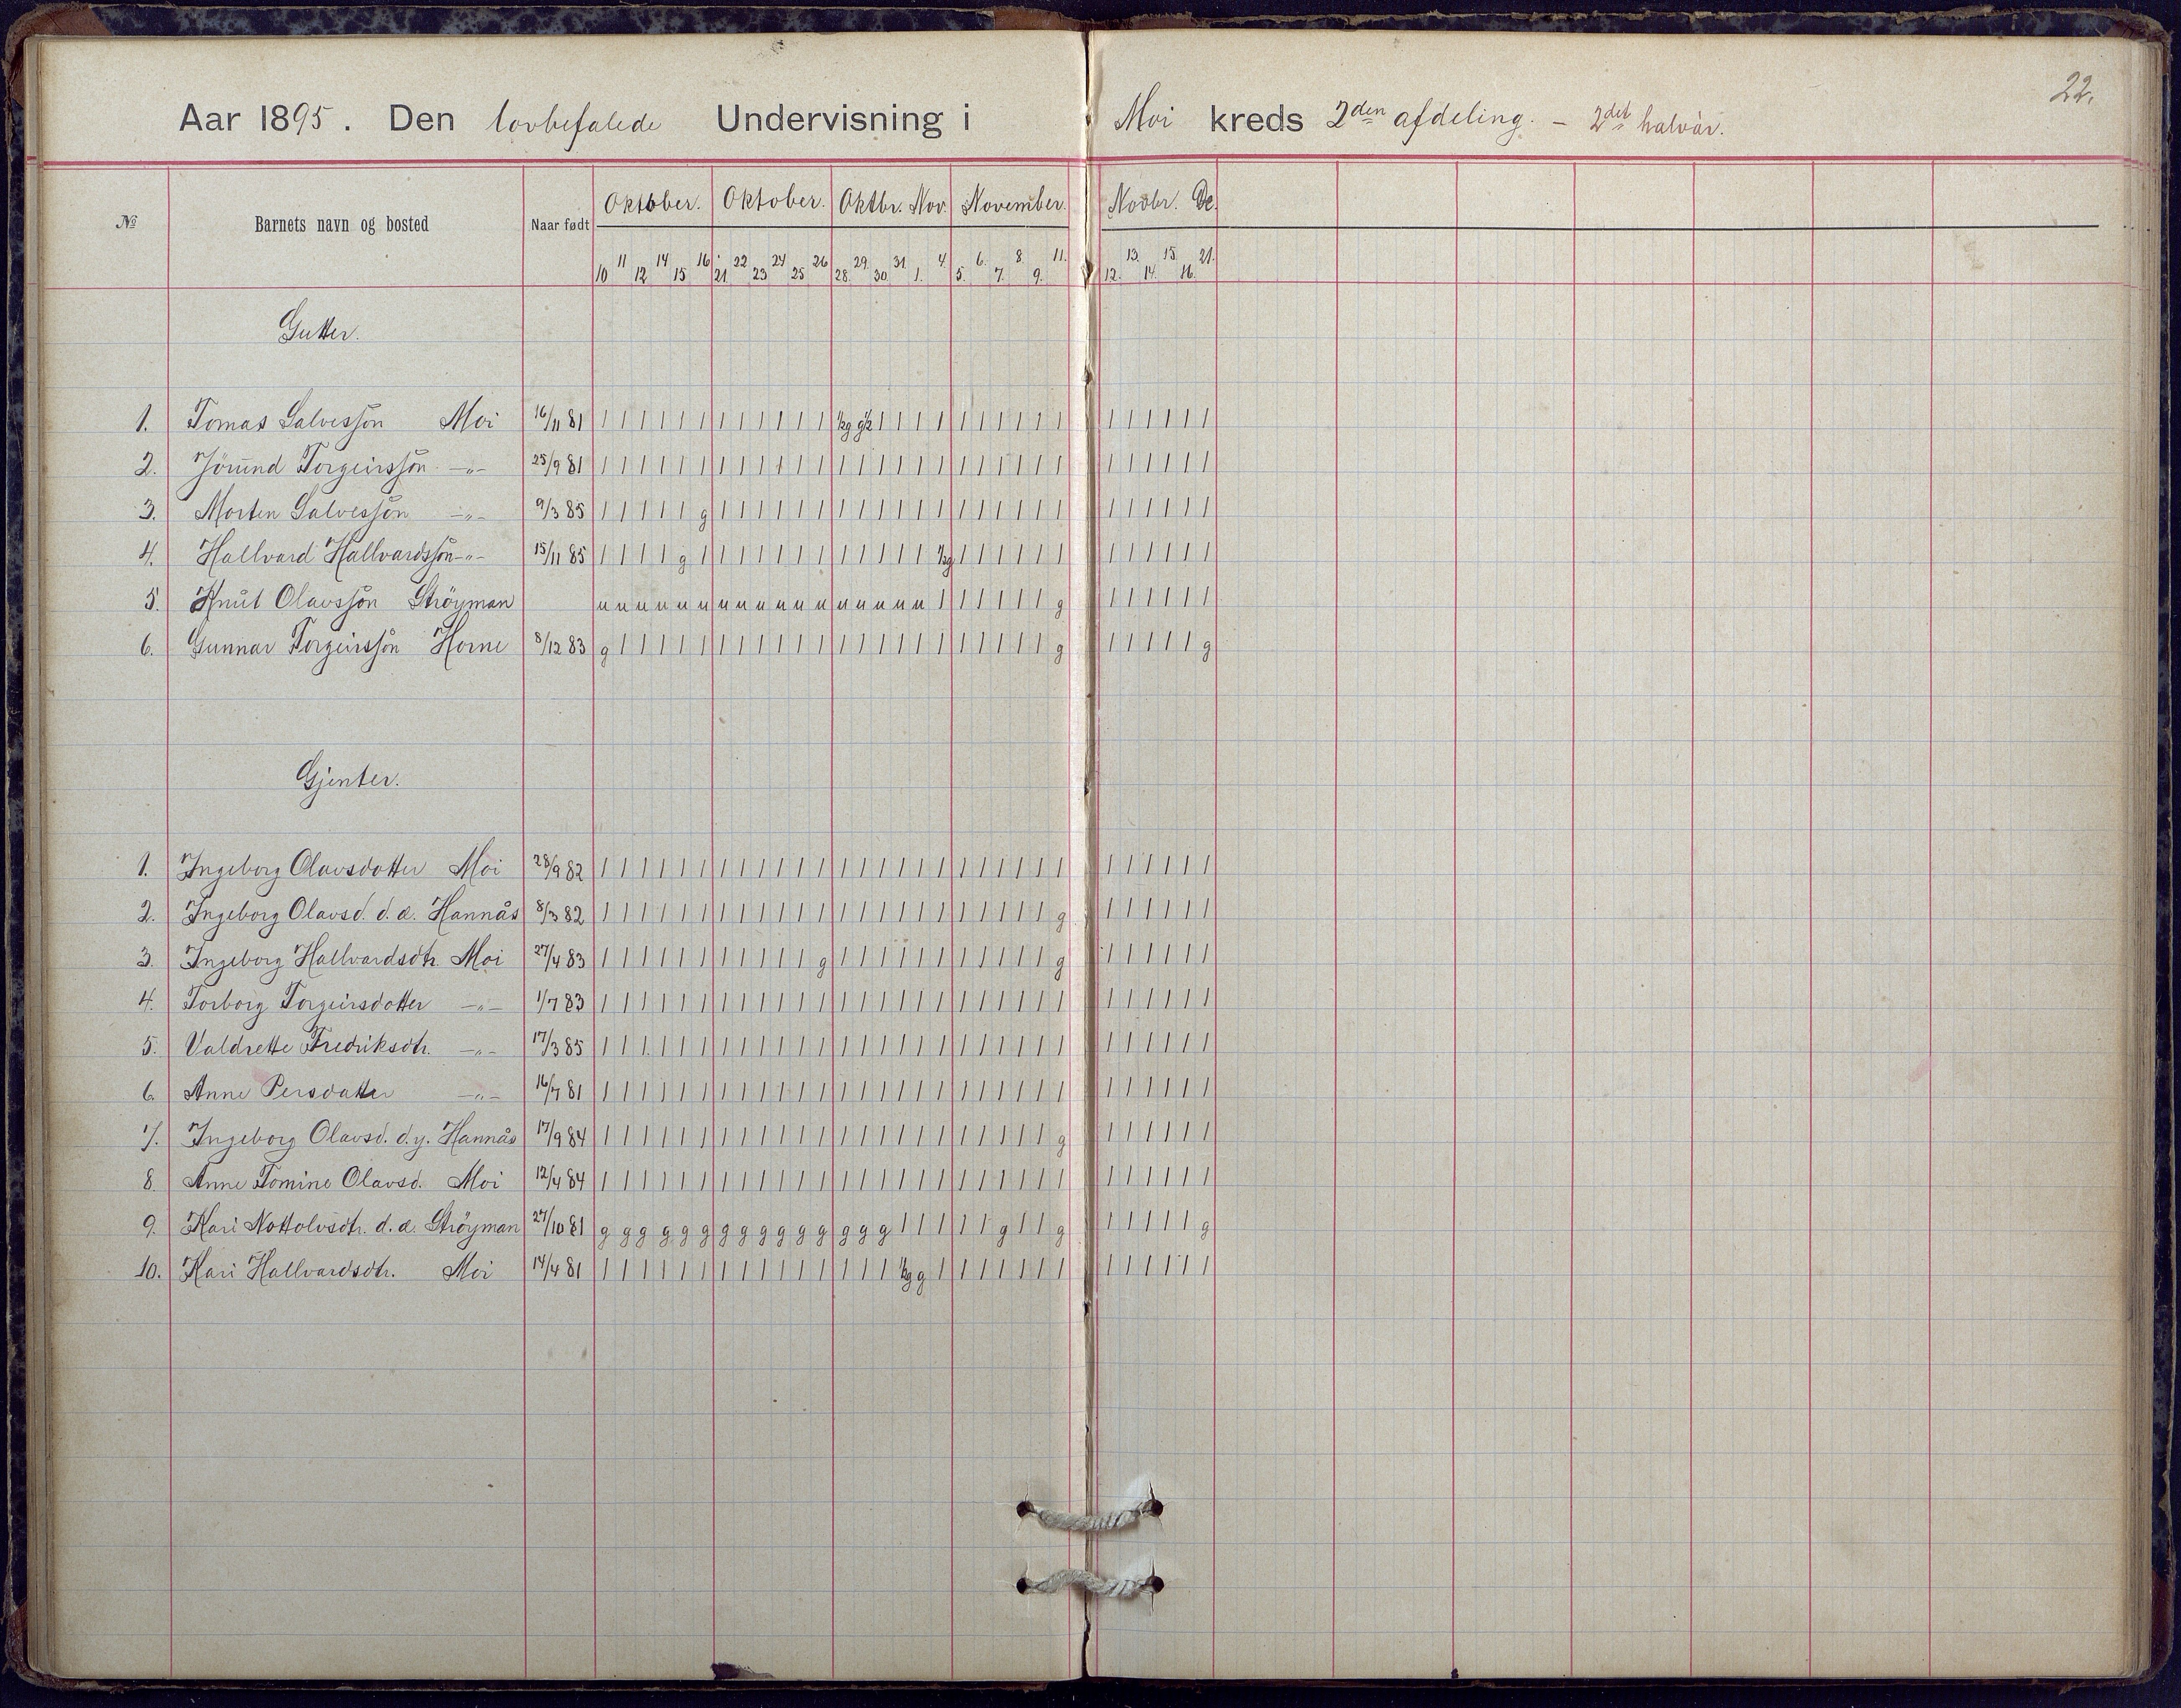 22.
Aar 1895. Den lovbefalede Undervisning i Moi kreds 2den afdeling. – 2det halvår.
№ Barnets navn og bosted Naar født Oktober. Oktober. Oktbr. Nov. November. Novbr. De.
10 11 12 14 15 16 21. 22 23 24 25 26 28. 29. 30. 31. 1. 4. 5. 6. 7. 8. 9. 11. 12. 13. 14. 15. 16. 21.
Gutter.
1. Tomas Salvessøn Moi 16/11 81 | | | | | | | | | | | | ½g g½ | | | | | | | | | | | | | | | |
2. Jörund Torgeirssøn –„– 25/9 81 | | | | | | | | | | | | | | | | | | | | | | | | | | | | | |
3. Morten Salvessøn –„– 9/3 85 | | | | | g | | | | | | | | | | | | | | | | | | | | | | | |
4. Hallvard Hallvardssøn –„– 15/11 85 | | | | g | | | | | | | | | | | | ½g | | | | | | | | | | | |
5. Knut Olavssøn Ströyman u u u u u u u u u u u u u u u u u | | | | | | g | | | | | |
6. Gunnar Torgeirssøn Horne 8/12 83 g | | | | | | | | | | | | | | | | | | | | | | g | | | | | g
Gjenter.
1. Ingeborg Olavsdatter Moi 28/9 82 | | | | | | | | | | | | | | | | | | | | | | | | | | | | | |
2. Ingeborg Olavsd. d.æ. Hannås 8/3 82 | | | | | | | | | | | | | | | | | | | | | | | g | | | | | |
3. Ingeborg Hallvardsdtr. Moi 27/4 83 | | | | | | | | | | | g | | | | | | | | | | | g | | | | | |
4. Torborg Torgeirsdatter –„– 1/7 83 | | | | | | | | | | | | | | | | | | | | | | | | | | | | | |
5. Valdrette Fredriksdtr. –„– 17/3 85 | | | | | | | | | | | | | | | | | | | | | | | | | | | | | |
6. Anne Persdatter –„– 16/7 81 | | | | | | | | | | | | | | | | | | | | | | | | | | | | | |
7. Ingeborg Olavsd. d.y. Hannås 17/9 84 | | | | | | | | | | | | | | | | | | | | | | | g | | | | | |
8. Anne Tomine Olavsd. Moi 12/4 84 | | | | | | | | | | | | | | | | | | | | | | | | | | | | | |
9. Kari Nottolvsdtr. d.æ. Ströyman 27/10 81 g g g g g g g g g g g g g g g | | | | | g | | g | | | | | g
10. Kari Hallvardsdtr. Moi 14/4 81 | | | | | | | | | | | | | | | ½g g | | | | | | | | | | | | |